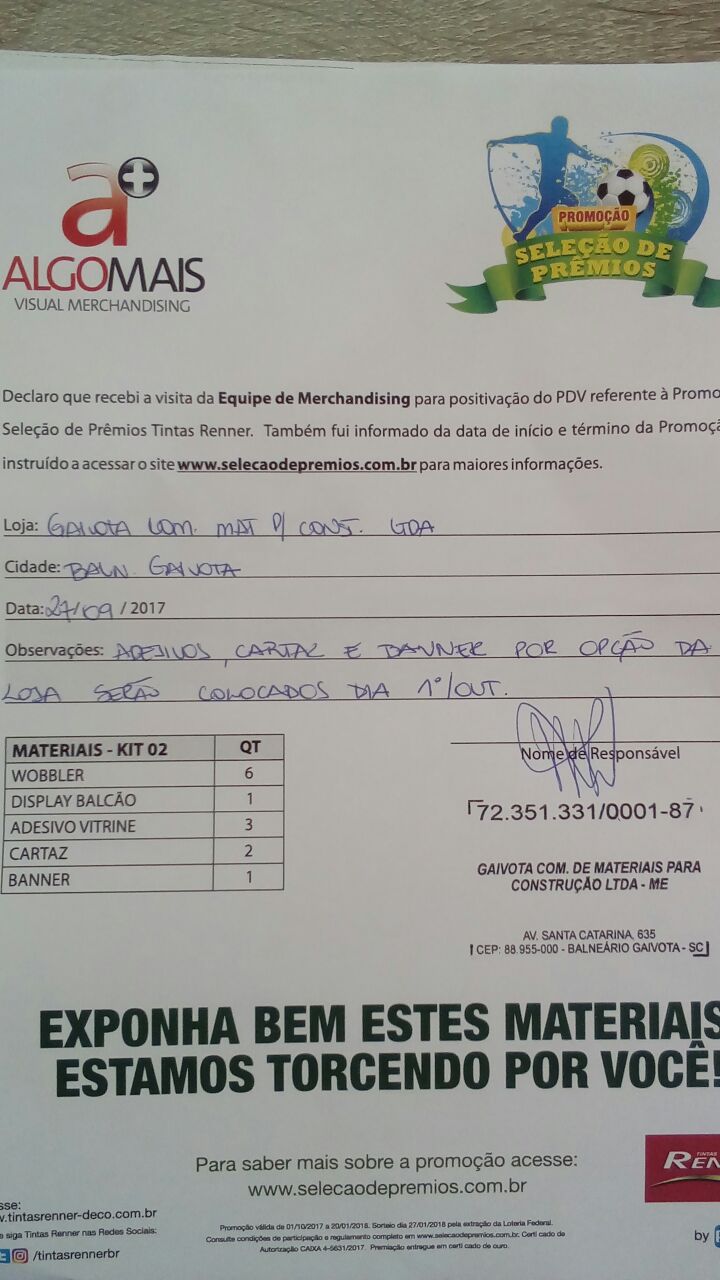 a+
ALGOMAIS
VISUAL MERCHANDISING
PROMOÇÃO
SELEÇÃO DE
PRÊMIOS
Declaro que recebi a visita da Equipe de Merchandising para positivação do PDV referente à Promo
Seleção de Prêmios Tintas Renner. Também fui informado da data de início e término da Promoçã
instruído a acessar o site www.selecaodepremios.com.br para maiores informações.
Loja: GAIVOTA COM. MAT P/ CONST. LTDA
Cidade: BALN. GAIVOTA
Data: 27/09 / 2017
Observações: ADESIVOS, CARTAZ E BANNER POR OPÇÃO DA
LOJA SERÃO COLOCADOS DIA 1º/OUT.
MATERIAIS - KIT 02 QT
WOBBLER 6
DISPLAY BALCÃO 1
ADESIVO VITRINE 3
CARTAZ 2
BANNER 1
Nome de Responsável
72.351.331/0001-87
GAIVOTA COM. DE MATERIAIS PARA
CONSTRUÇÃO LTDA - ME
AV. SANTA CATARINA, 635
CEP: 88.955-000 - BALNEÁRIO GAIVOTA - SC
EXPONHA BEM ESTES MATERIAIS
ESTAMOS TORCENDO POR VOCÊ!
Para saber mais sobre a promoção acesse:
www.selecaodepremios.com.br
TINTAS
REN
sse:
w.tintasrenner-deco.com.br
e siga Tintas Renner nas Redes Sociais:
/tintasrennerbr
Promoção válida de 01/10/2017 a 20/01/2018. Sorteio dia 27/01/2018 pela extração da Loteria Federal.
Consulte condições de participação e regulamento completo em www.selecaodepremios.com.br. Certi cado de
Autorização CAIXA 4-5631/2017. Premiação entregue em certi cado de ouro.
by